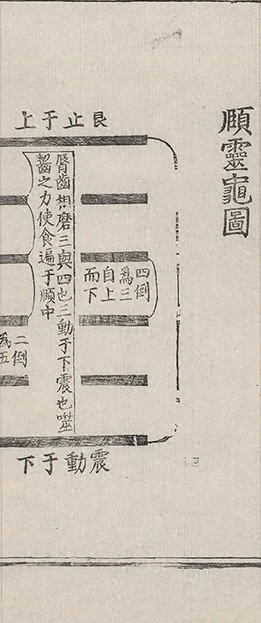 頤靈龜圖
艮止于上
四倒
爲三
自上
而下
脣齒相磨三與四也三動于下震也噬
齧之力使食遍于頤中
二倒
爲五
震動于下